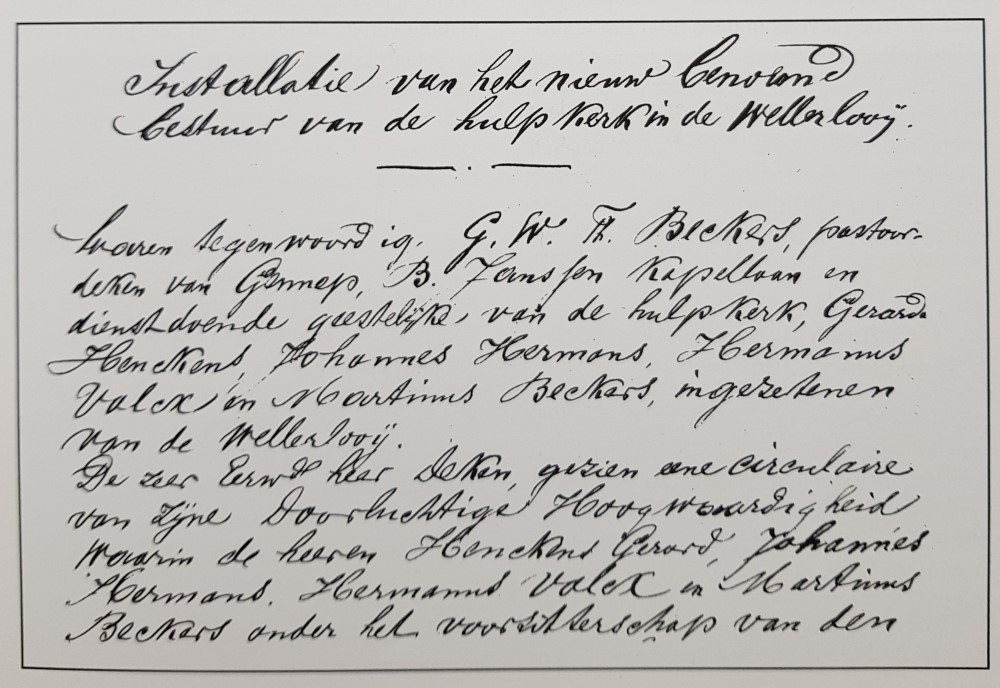 Installatie van het nieuw benoemd
bestuur van de hulpkerk in de Wellerlooÿ.
Waren tegenwoordig. G. W. Th. Beckers, pastoor-
deken van Gennep, B. Janssen Kapellaan en
dienstdoende geestelijke van de hulpkerk, Gerard
Henckens, Johannes Hermans, Hermanus
Valck en Martinus Beckers, ingezetenen
van de Wellerlooÿ.
De zeer Eerwd heer Deken, gezien eene circulaire
van Zijne Doorluchtige Hoogwaardigheid
waarin de heeren Henckens Gerard, Johannes
Hermans, Hermanus Valck en Martinus
Beckers onder het voorzitterschap van den